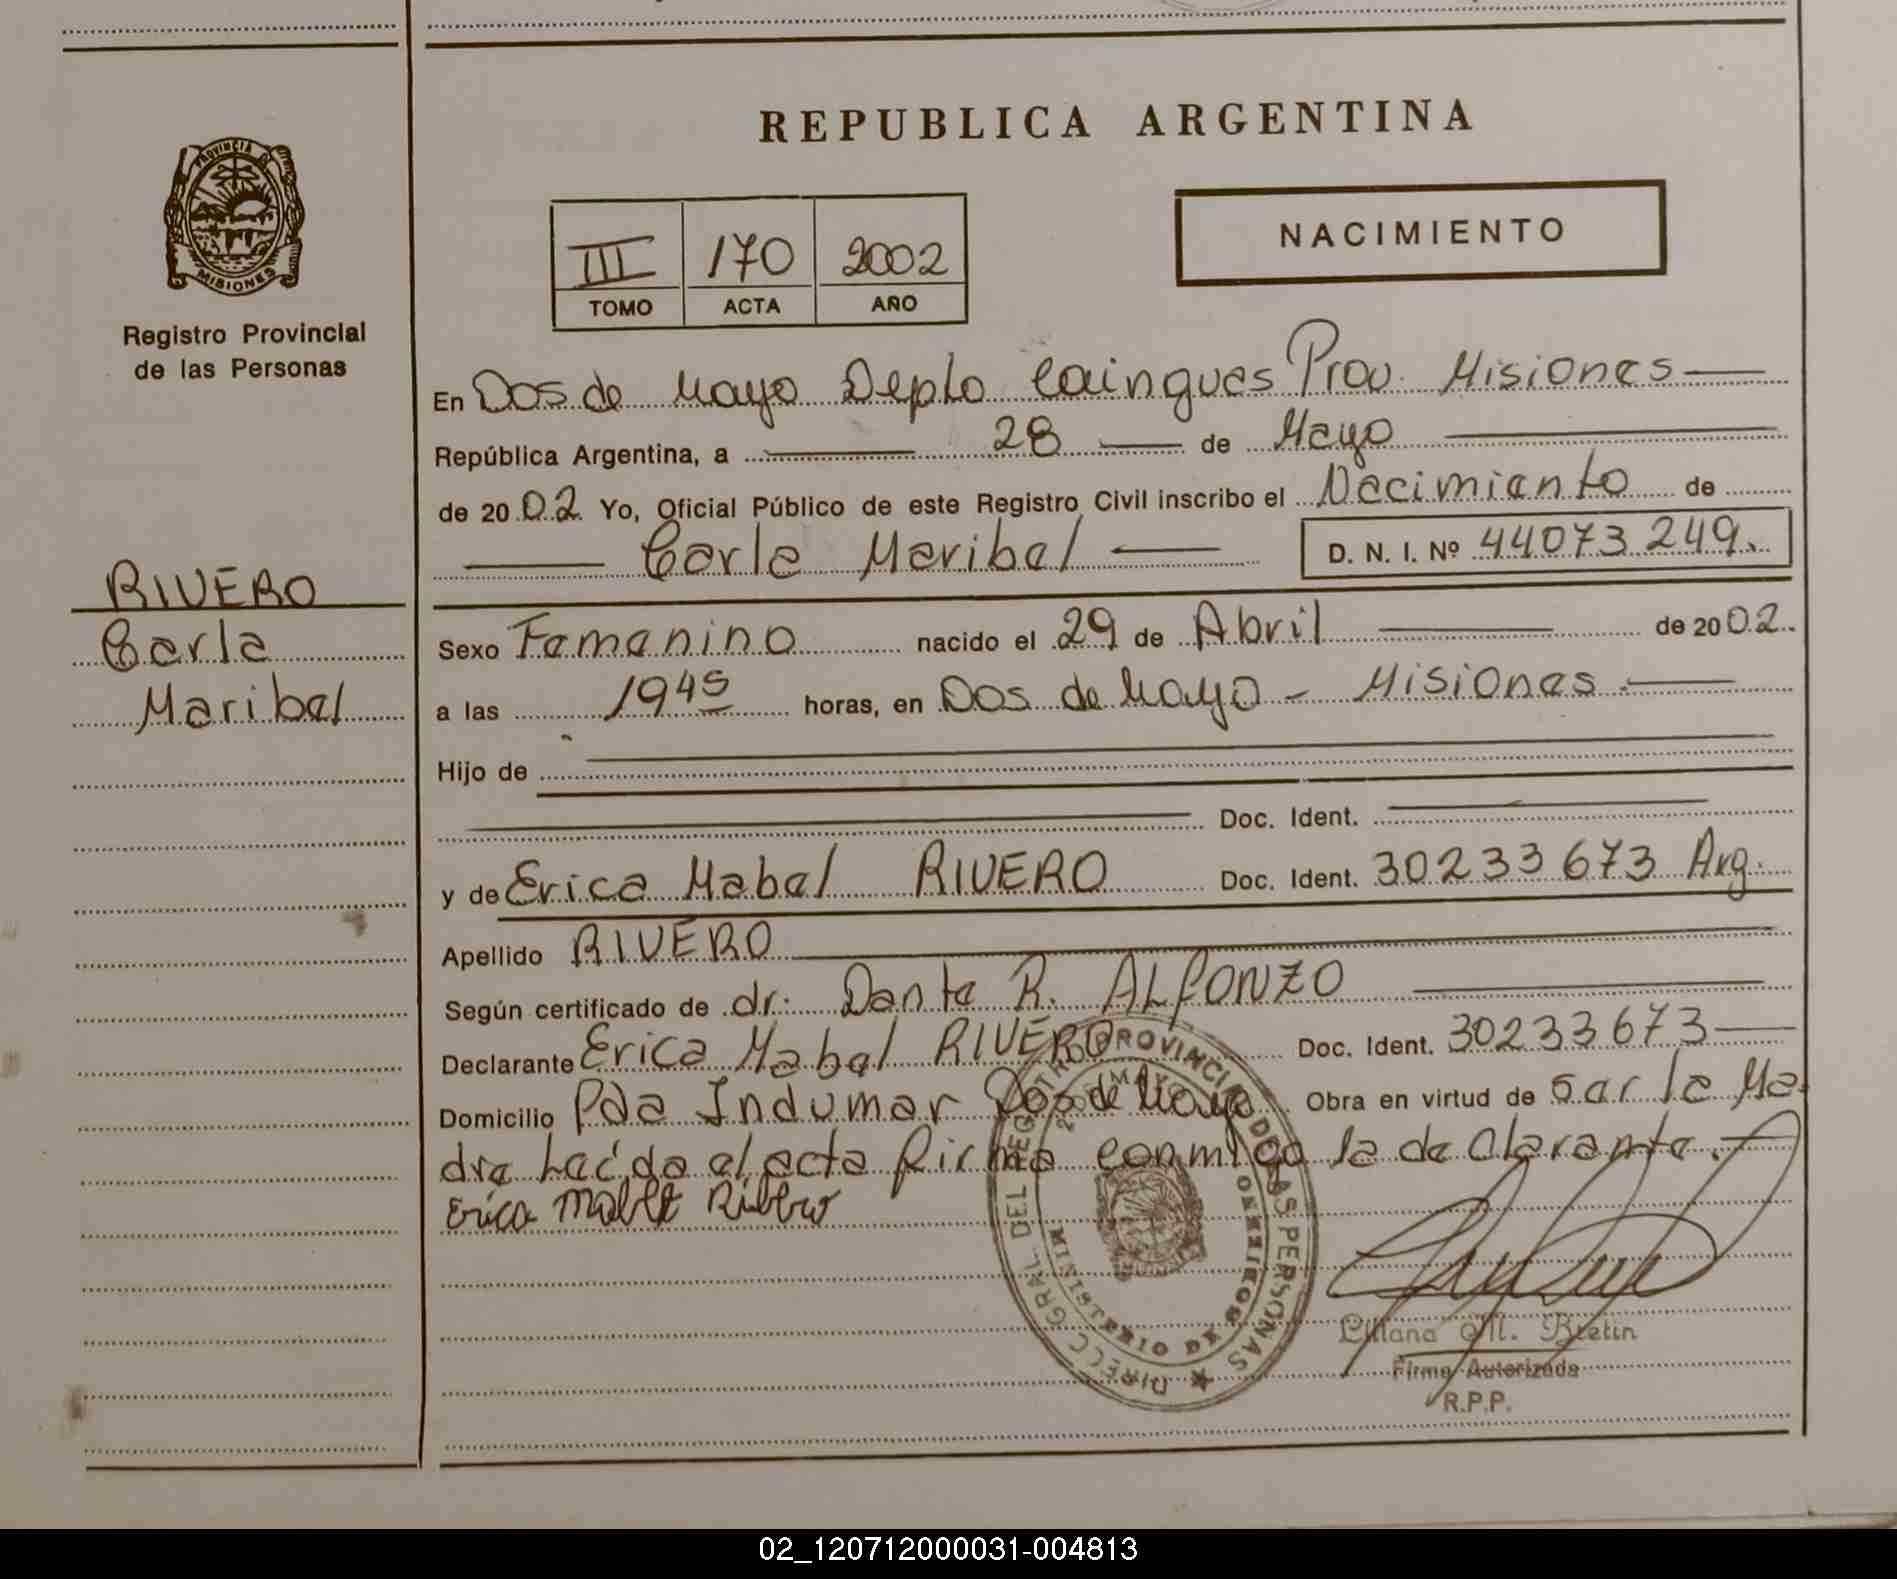 REPUBLICA ARGENTINA
PROVINCIA DE MISIONES
Registro Provincial
de las Personas
III 170 2002
TOMO ACTA AÑO
NACIMIENTO
En Dos de Mayo Depto Cainguas Prov. Misiones
República Argentina, a 28 de Mayo
de 2002 Yo, Oficial Público de este Registro Civil inscribo el Nacimiento de
Carla Maribel D. N. I. Nº 44073249.
RIVERO
Carla
Maribel
Sexo Femenino nacido el 29 de Abril de 2002.
a las 1945 horas, en Dos de Mayo - Misiones.
Hijo de
Doc. Ident.
y de Erica Mabel RIVERO Doc. Ident. 30233673 Arg.
Apellido RIVERO
Según certificado de dr. Dante R. ALFONZO
Declarante Erica Mabel RIVERO Doc. Ident. 30233673
Domicilio Pda Indumar Dos de Mayo Obra en virtud de ser la Ma-
dre Leída el acta firma conmigo la declarante.
Erica Rivero
DIRECC GRAL. DEL REGISTRO PROVINCIAL DE LAS PERSONAS
MINISTERIO DE GOBIERNO
Liliana M. Bretin
Firma Autorizada
R.P.P.
02_120712000031-004813